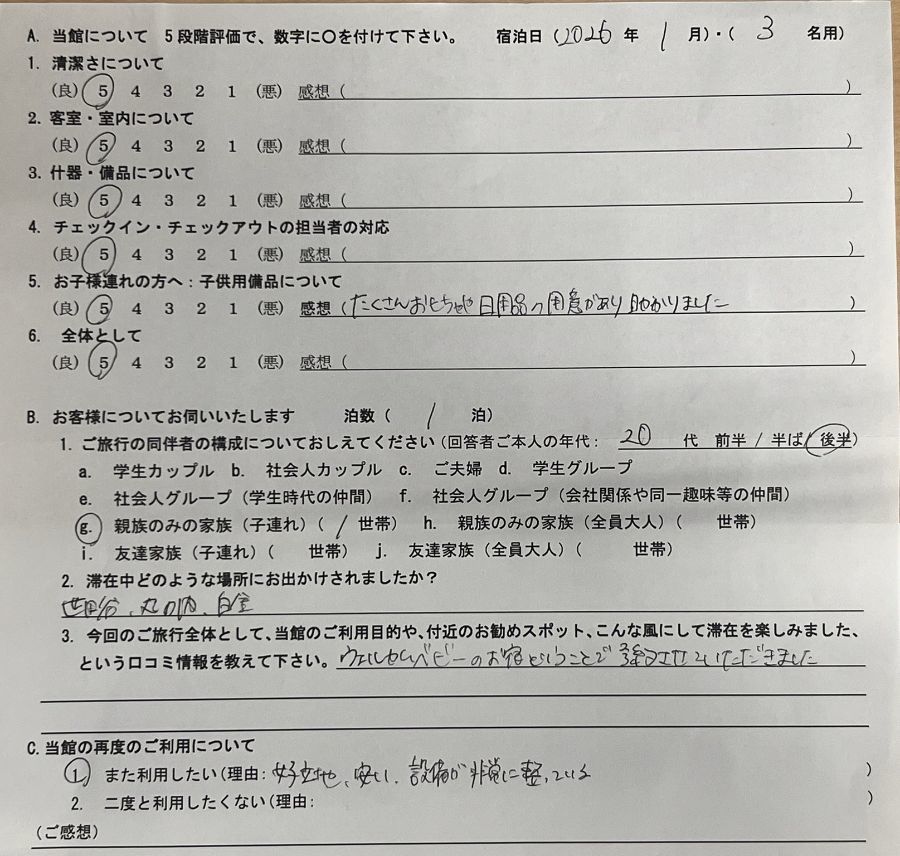 A. 当館について 5段階評価で、数字に〇を付けて下さい。 宿泊日(2026年 1月)・( 3 名用)
1. 清潔さについて
(良) 5 4 3 2 1 (悪) 感想 ( )
2. 客室・室内について
(良) 5 4 3 2 1 (悪) 感想 ( )
3. 什器・備品について
(良) 5 4 3 2 1 (悪) 感想 ( )
4. チェックイン・チェックアウトの担当者の対応
(良) 5 4 3 2 1 (悪) 感想 ( )
5. お子様連れの方へ:子供用備品について
(良) 5 4 3 2 1 (悪) 感想 (たくさんおもちゃや日用品の用意があり助かりました )
6. 全体として
(良) 5 4 3 2 1 (悪) 感想 ( )
B. お客様についてお伺いいたします 泊数 ( 1 泊)
1. ご旅行の同伴者の構成についておしえてください(回答者ご本人の年代: 20 代 前半 / 半ば/ 後半)
a. 学生カップル b. 社会人カップル c. ご夫婦 d. 学生グループ
e. 社会人グループ(学生時代の仲間) f. 社会人グループ(会社関係や同一趣味等の仲間)
g. 親族のみの家族(子連れ)( 1 世帯) h. 親族のみの家族(全員大人)( 世帯)
i. 友達家族(子連れ)( 世帯) j. 友達家族(全員大人)( 世帯)
2. 滞在中どのような場所にお出かけされましたか?
世田谷、丸の内、白金
3. 今回のご旅行全体として、当館のご利用目的や、付近のお勧めスポット、こんな風にして滞在を楽しみました、
という口コミ情報を教えて下さい。ウェルカムベビーのお宿ということで させていただきました
C. 当館の再度のご利用について
1. また利用したい(理由: 好立地、安い、設備が非常に整っている )
2. 二度と利用したくない(理由: )
(ご感想)